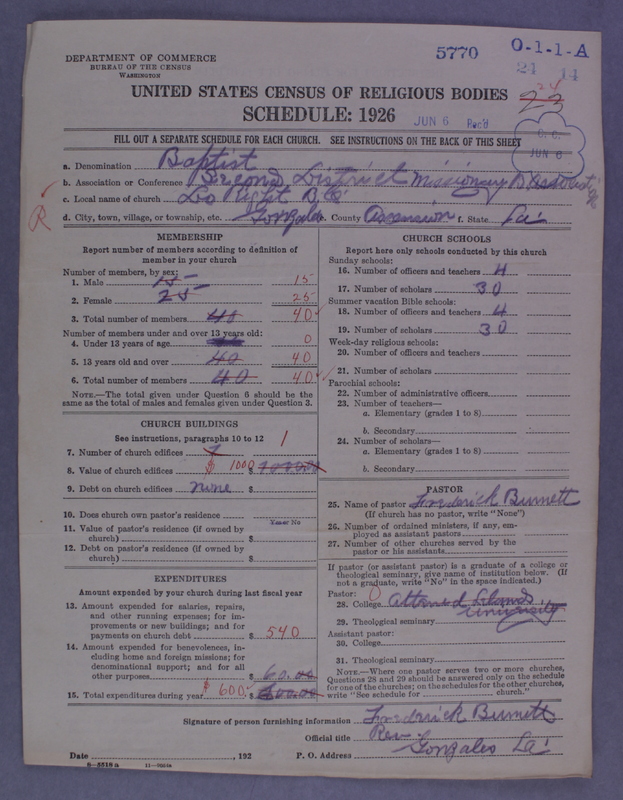 DEPARTMENT OF COMMERCE
BUREAU OF THE CENSUS
WASHINGTON
5770
O-1-1-A
24 14
24
23
UNITED STATES CENSUS OF RELIGIOUS BODIES
SCHEDULE: 1926
JUN 6 Rec'd
FILL OUT A SEPARATE SCHEDULE FOR EACH CHURCH. SEE INSTRUCTIONS ON THE BACK OF THIS SHEET
C. C.
JUN 6
a. Denomination Baptist
b. Association or Conference Second District Missionary B Association
R
c. Local name of church Right B. C.
d. City, town, village, or township, etc. Gonzales e. County Ascension f. State La.
MEMBERSHIP
Report number of members according to definition of
member in your church
Number of members, by sex:
1. Male 15 15
2. Female 25 25
3. Total number of members 40 40
Number of members under and over 13 years old:
4. Under 13 years of age 0
5. 13 years old and over 40 40
6. Total number of members 40 40
NOTE.—The total given under Question 6 should be
the same as the total of males and females given under Question 3.
CHURCH BUILDINGS
See instructions, paragraphs 10 to 12
7. Number of church edifices 1
8. Value of church edifices $ 1000 $
9. Debt on church edifices none $
10. Does church own pastor's residence
Yes or No
11. Value of pastor's residence (if owned by
church) $
12. Debt on pastor's residence (if owned by
church) $
EXPENDITURES
Amount expended by your church during last fiscal year
13. Amount expended for salaries, repairs,
and other running expenses; for im-
provements or new buildings; and for
payments on church debt $ 540
14. Amount expended for benevolences, in-
cluding home and foreign missions; for
denominational support; and for all
other purposes $ 60.00
15. Total expenditures during year $ 600 $ 600.00
CHURCH SCHOOLS
Report here only schools conducted by this church
Sunday schools:
16. Number of officers and teachers 4
17. Number of scholars 30
Summer vacation Bible schools:
18. Number of officers and teachers 4
19. Number of scholars 30
Week-day religious schools:
20. Number of officers and teachers
21. Number of scholars
Parochial schools:
22. Number of administrative officers
23. Number of teachers—
a. Elementary (grades 1 to 8)
b. Secondary
24. Number of scholars—
a. Elementary (grades 1 to 8)
b. Secondary
PASTOR
25. Name of pastor Frederick Burnett
(If church has no pastor, write "None")
26. Number of ordained ministers, if any, em-
ployed as assistant pastors
27. Number of other churches served by the
pastor or his assistants
If pastor (or assistant pastor) is a graduate of a college or
theological seminary, give name of institution below. (If
not a graduate, write "No" in the space indicated.)
Pastor: 0
28. College Attened Leland
University
29. Theological seminary
Assistant pastor:
30. College
31. Theological seminary
NOTE.—Where one pastor serves two or more churches,
Questions 28 and 29 should be answered only on the schedule
for one of the churches; on the schedules for the other churches,
write "See schedule for church."
Signature of person furnishing information Frederick Burnett
Official title Rev.
Date , 192 P. O. Address Gonzales La.
8—5518 a